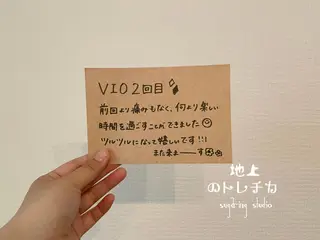 VIO2回目
前回より痛みもなく、何より楽しい
時間を過ごすことができました
ツルツルになって嬉しいです!!!
また来まーーす
地上
のトレチカ
sugaring studio